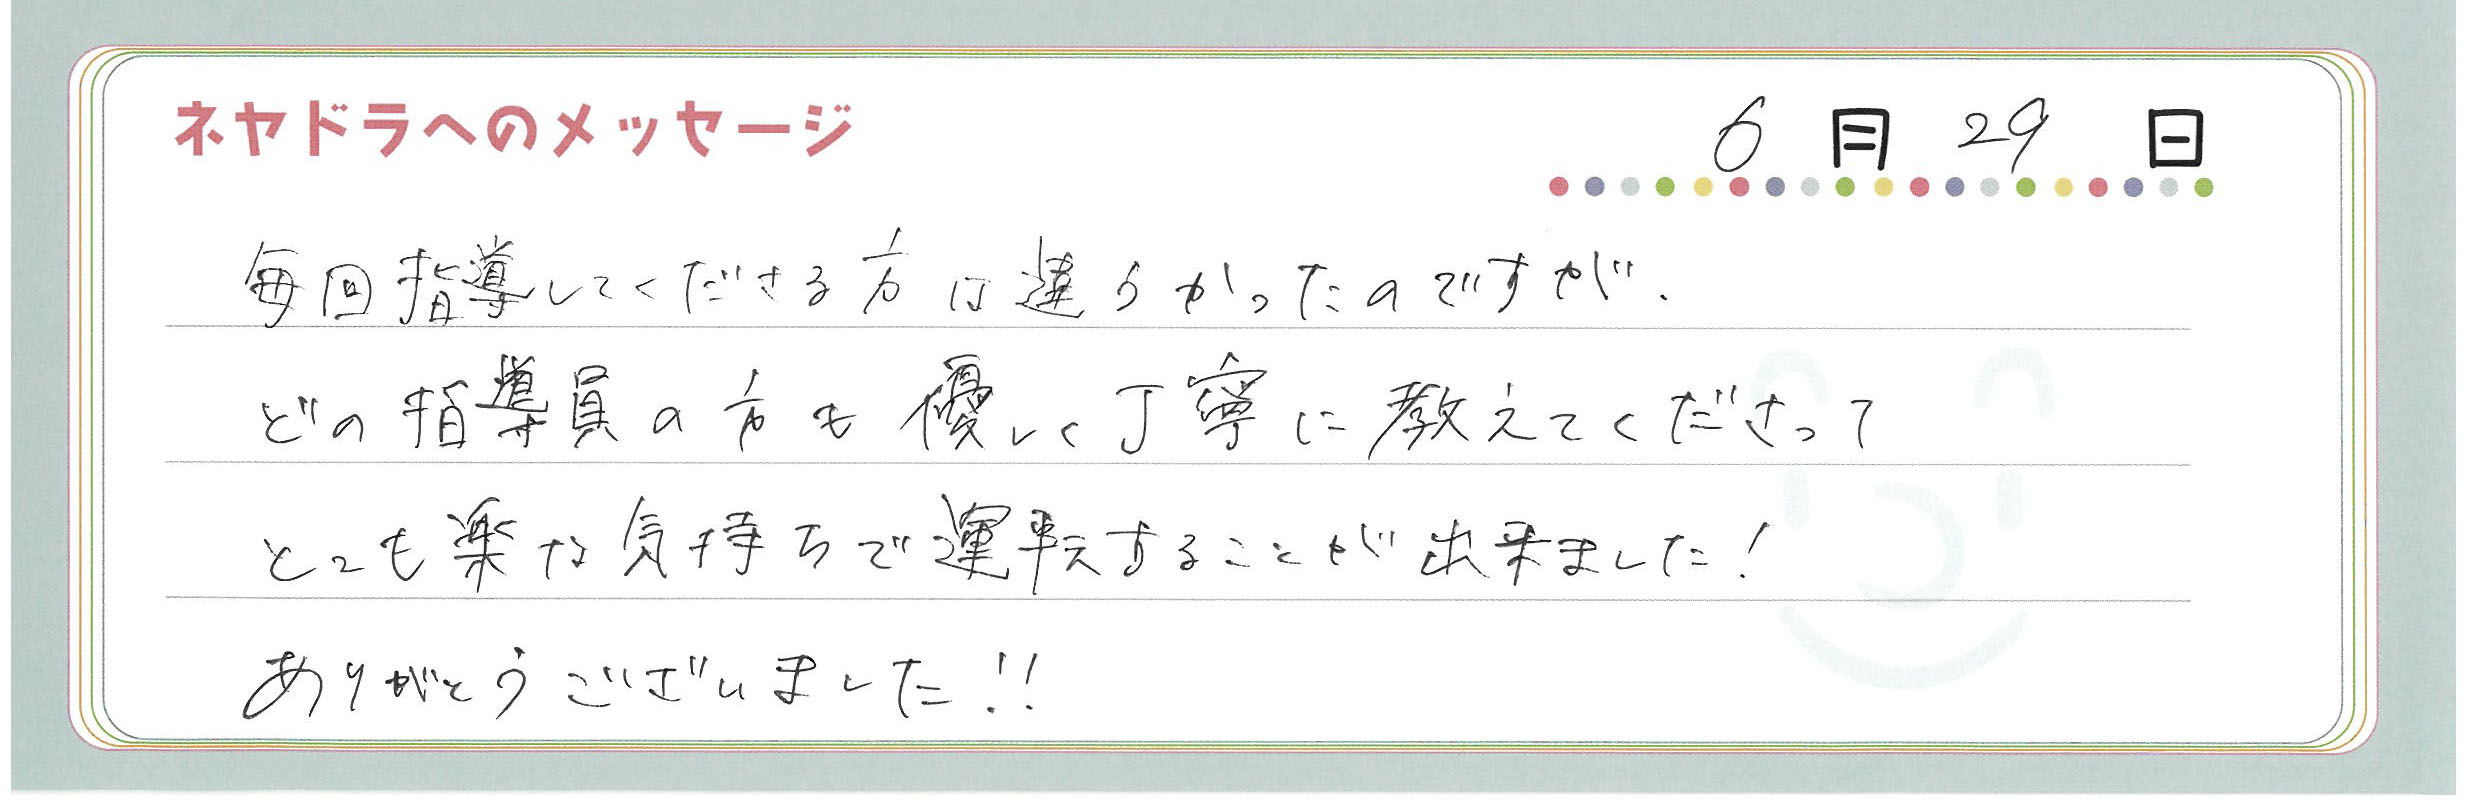 ネヤドラへのメッセージ
6月29日
毎回指導してくださる方は違うかったのですが、
どの指導員の方も優しく丁寧に教えてくださって
とっも楽な気持ちで運転することが出来ました！
ありがとうございました！！